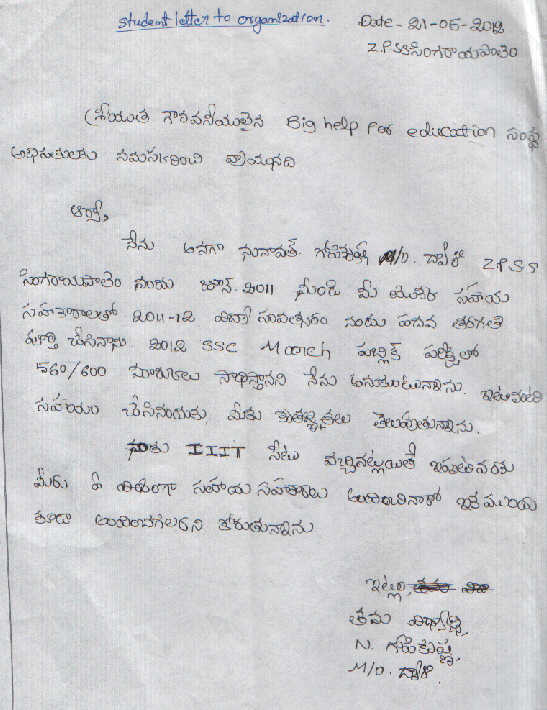 Student letter to organization.
Date - 21-05-2012
Z.P.S.S సింగరాయపాలెం
శ్రీయుత గౌరవనీయులైన Big help for education సంస్థ
అధినేతలకు నమస్కరించి వ్రాయునది
ఆర్యా,
నేను అనగా నునావత్ గోపికృష్ణ M/O. Z.P.S.S
సింగరాయపాలెం నందు జూన్-2011 నుండి మీ యొక్క సహాయ
సహకారాలతో 2011-12 విద్యా సంవత్సరం నందు పదవ తరగతి
పూర్తి చేసినాను. 2012 SSC March పబ్లిక్ పరీక్షలో
560/600 మార్కులు సాధిస్తానని నేను అనుకుంటున్నాను. ఇటువంటి
సహాయం చేసినందుకు మీకు కృతజ్ఞతలు తెలుపుతున్నాను.
నాకు IIIT సీటు వచ్చినట్లయితే ఇప్పటివరకు
మీరు ఏ విధంగా సహాయ సహకారాలు అందించినారో ఇక ముందు
కూడా అందించగలరని కోరుతున్నాను
ఇట్లు,
తమ విద్యార్థి
N. గోపికృష్ణ.
M/O.